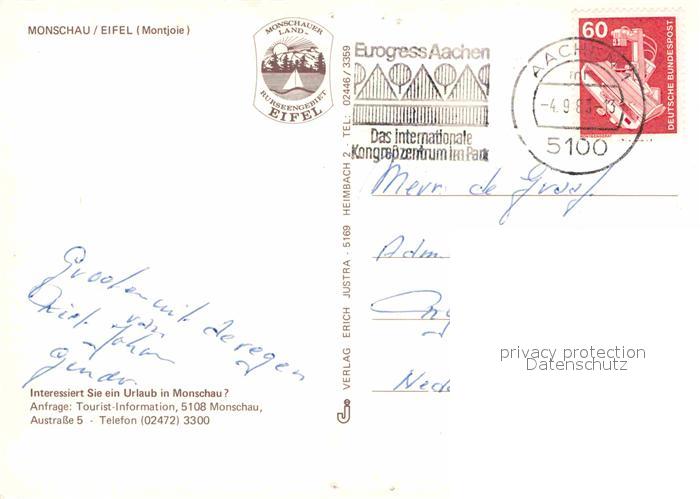 MONSCHAU / EIFEL (Montjoie)
MONSCHAUER
LAND-
RURSEENGEBIET
EIFEL
Eurogress Aachen
Das internationale
Kongreßzentrum im Park
AACHEN 1
mf
-4.9.8
5100
60
DEUTSCHE BUNDESPOST
RÖNTGENGERÄT
VERLAG ERICH JUSTRA · 5169 HEIMBACH 2 · TEL.: 02446 / 3359
Mevr. de Graaf.
Adm.
Ned
Groeten uit de regen
van
Riet, John
privacy protection
Datenschutz
Interessiert Sie ein Urlaub in Monschau?
Anfrage: Tourist-Information, 5108 Monschau,
Austraße 5 - Telefon (02472) 3300